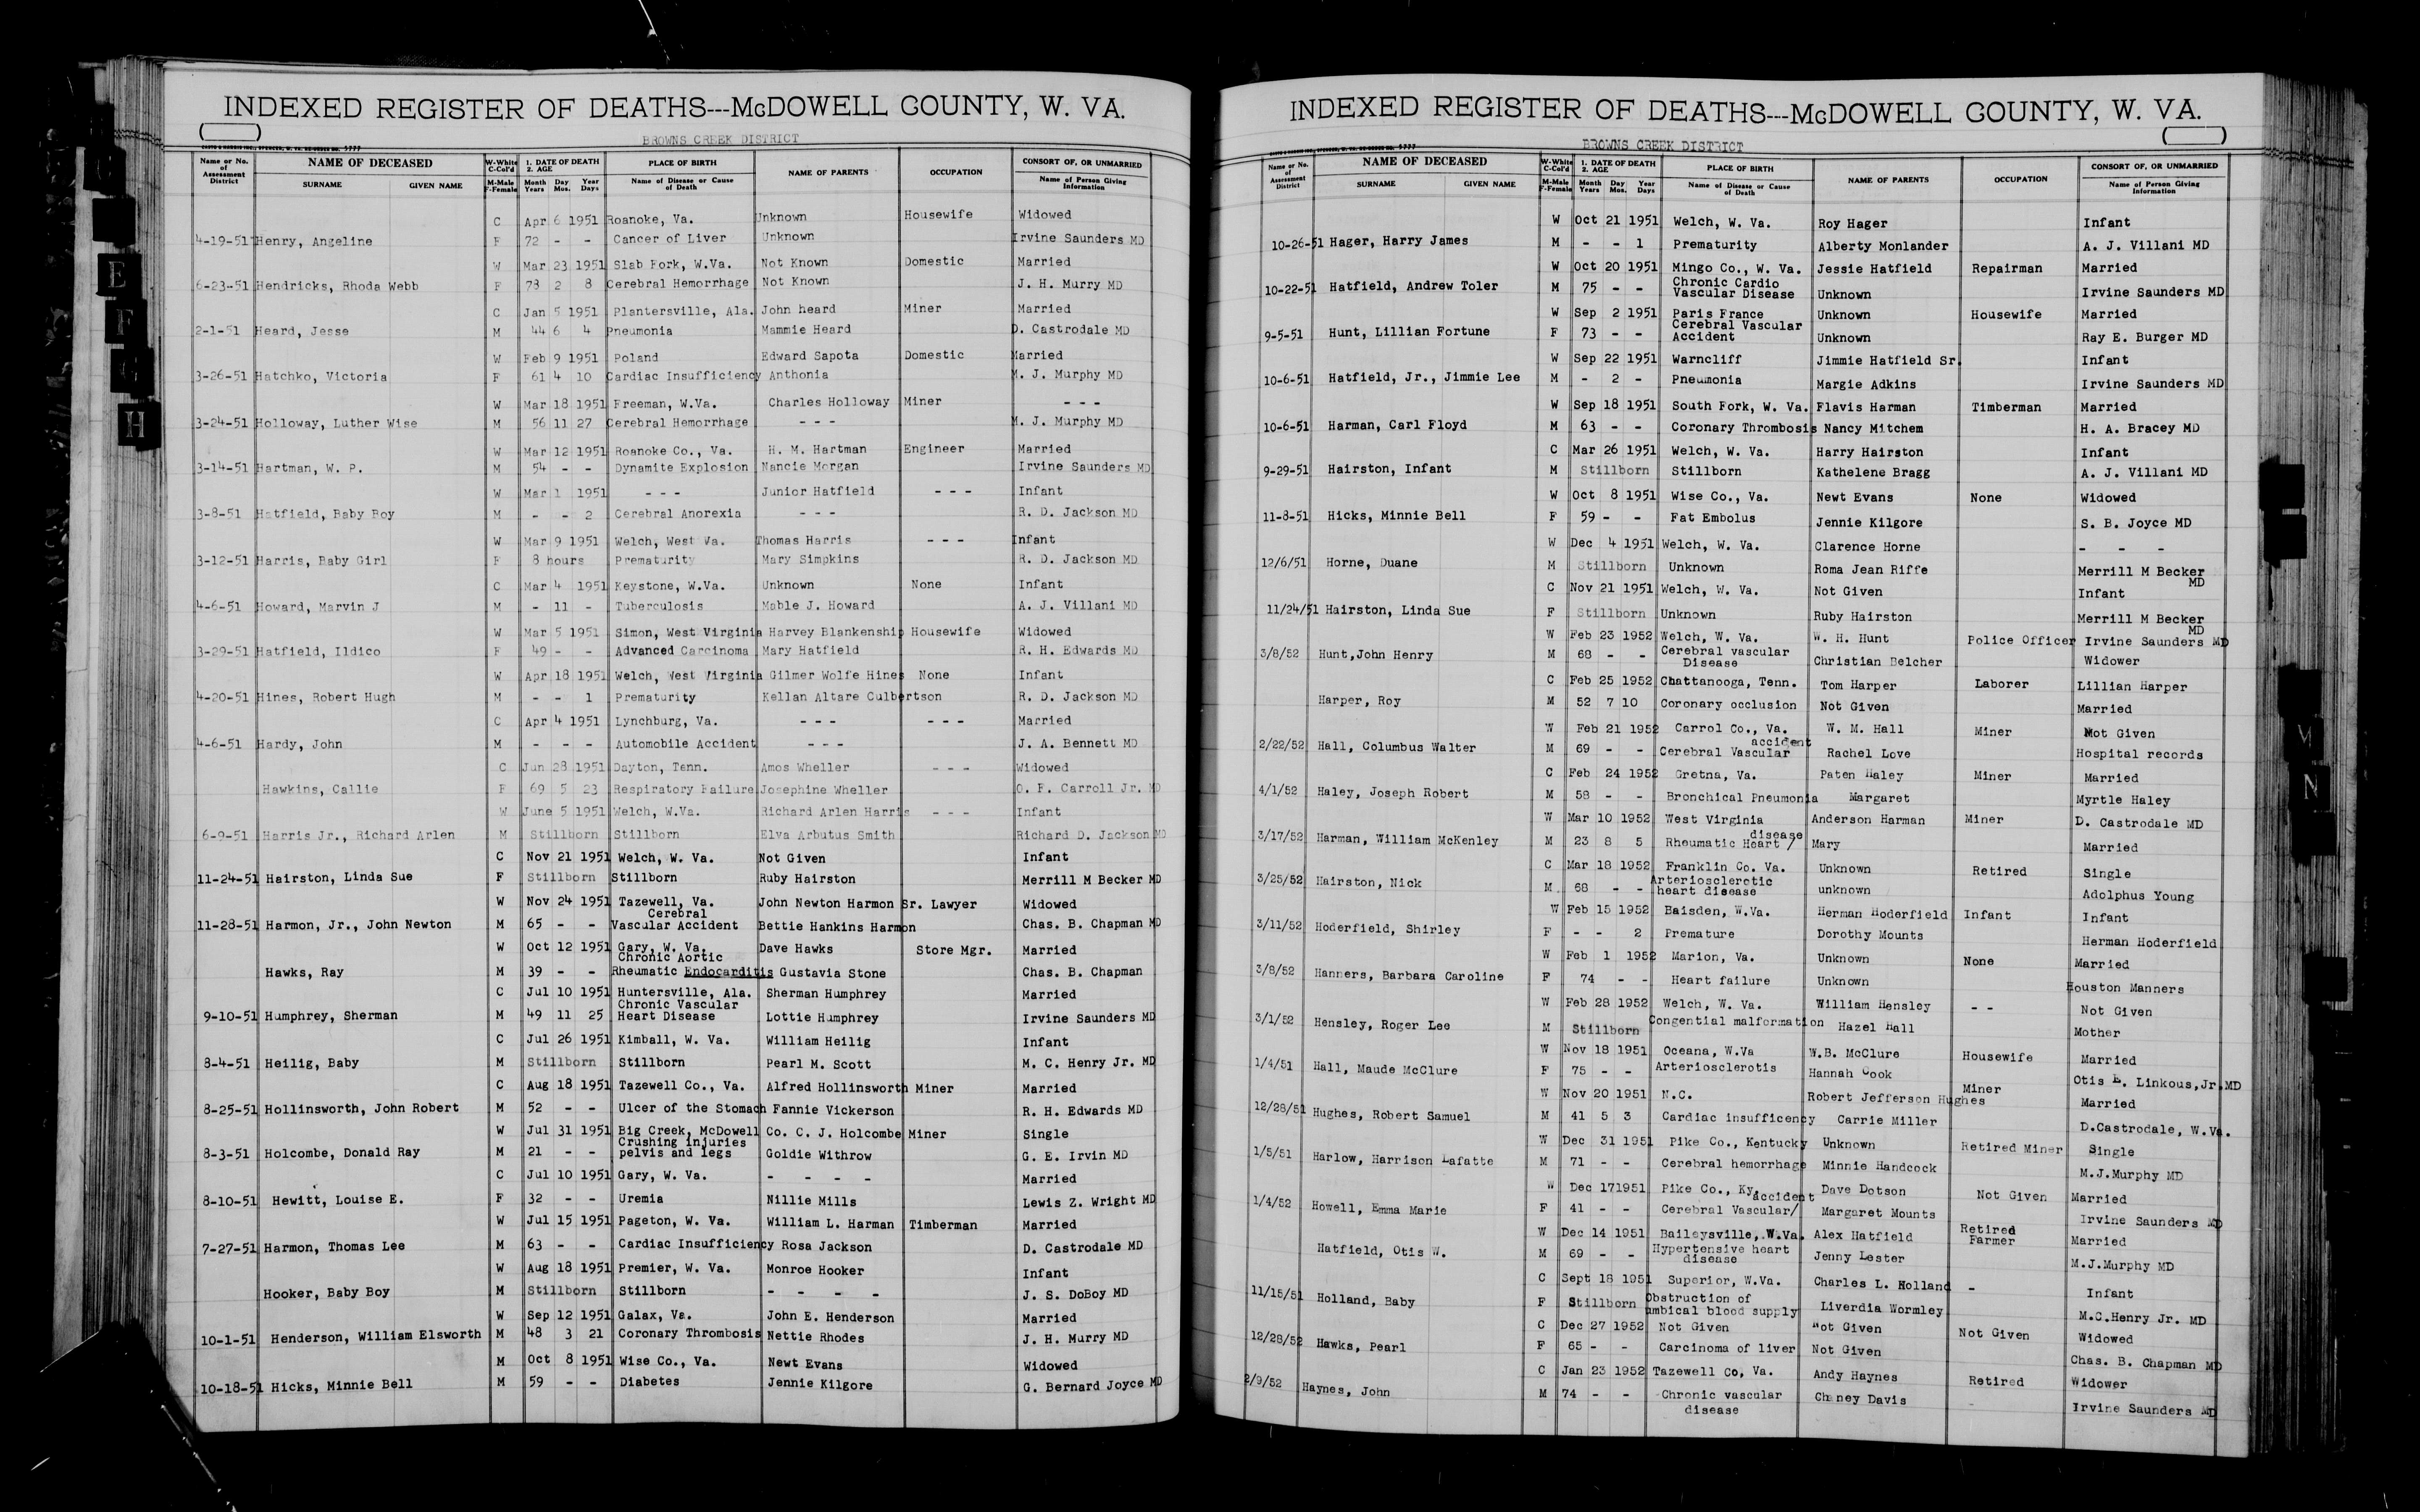 INDEXED REGISTER OF DEATHS---McDOWELL COUNTY, W. VA.
BROWNS CREEK DISTRICT
Name or No. of Assessment District | NAME OF DECEASED SURNAME GIVEN NAME | W-White C-Col'd M-Male F-Female | 1. DATE OF DEATH 2. AGE Month Day Year Years Mos. Days | PLACE OF BIRTH Name of Disease or Cause of Death | NAME OF PARENTS | OCCUPATION | CONSORT OF, OR UNMARRIED Name of Person Giving Information
C Apr 6 1951 Roanoke, Va. Unknown Housewife Widowed
4-19-51 Henry, Angeline F 72 - - Cancer of Liver Unknown Irvine Saunders MD
W Mar 23 1951 Slab Fork, W.Va. Not Known Domestic Married
6-23-51 Hendricks, Rhoda Webb F 73 2 8 Cerebral Hemorrhage Not Known J. H. Murry MD
C Jan 5 1951 Plantersville, Ala. John heard Miner Married
2-1-51 Heard, Jesse M 44 6 4 Pneumonia Mammie Heard D. Castrodale MD
W Feb 9 1951 Poland Edward Sapota Domestic Married
3-26-51 Hatchko, Victoria F 61 4 10 Cardiac Insufficiency Anthonia M. J. Murphy MD
W Mar 18 1951 Freeman, W.Va. Charles Holloway Miner - - -
3-24-51 Holloway, Luther Wise M 56 11 27 Cerebral Hemorrhage - - - M. J. Murphy MD
W Mar 12 1951 Roanoke Co., Va. H. M. Hartman Engineer Married
3-14-51 Hartman, W. P. M 54 - - Dynamite Explosion Nancie Morgan Irvine Saunders MD
W Mar 1 1951 - - - Junior Hatfield - - - Infant
3-8-51 Hatfield, Baby Boy M - - 2 Cerebral Anorexia - - - R. D. Jackson MD
W Mar 9 1951 Welch, West Va. Thomas Harris - - - Infant
3-12-51 Harris, Baby Girl F 8 hours Prematurity Mary Simpkins R. D. Jackson MD
C Mar 4 1951 Keystone, W.Va. Unknown None Infant
4-6-51 Howard, Marvin J M - 11 - Tuberculosis Mable J. Howard A. J. Villani MD
W Mar 5 1951 Simon, West Virginia Harvey Blankenship Housewife Widowed
3-29-51 Hatfield, Ildico F 49 - - Advanced Carcinoma Mary Hatfield R. H. Edwards MD
W Apr 18 1951 Welch, West Virginia Gilmer Wolfe Hines None Infant
4-20-51 Hines, Robert Hugh M - - 1 Prematurity Kellan Altare Culbertson R. D. Jackson MD
C Apr 4 1951 Lynchburg, Va. - - - - - - Married
4-6-51 Hardy, John M - - - Automobile Accident - - - J. A. Bennett MD
C Jun 28 1951 Dayton, Tenn. Amos Wheller - - - Widowed
Hawkins, Callie F 69 5 23 Respiratory Failure Josephine Wheller O. F. Carroll Jr. MD
W June 5 1951 Welch, W.Va. Richard Arlen Harris - - - Infant
6-9-51 Harris Jr., Richard Arlen M Stillborn Stillborn Elva Arbutus Smith Richard D. Jackson MD
C Nov 21 1951 Welch, W. Va. Not Given Infant
11-24-51 Hairston, Linda Sue F Stillborn Stillborn Ruby Hairston Merrill M Becker MD
W Nov 24 1951 Tazewell, Va. John Newton Harmon Sr. Lawyer Widowed
11-28-51 Harmon, Jr., John Newton M 65 - - Cerebral Vascular Accident Bettie Hankins Harmon Chas. B. Chapman MD
W Oct 12 1951 Gary, W. Va. Dave Hawks Store Mgr. Married
Hawks, Ray M 39 - - Chronic Aortic Rheumatic Endocarditis Gustavia Stone Chas. B. Chapman
C Jul 10 1951 Huntersville, Ala. Sherman Humphrey Married
9-10-51 Humphrey, Sherman M 49 11 25 Chronic Vascular Heart Disease Lottie Humphrey Irvine Saunders MD
C Jul 26 1951 Kimball, W. Va. William Heilig Infant
8-4-51 Heilig, Baby M Stillborn Stillborn Pearl M. Scott M. C. Henry Jr. MD
C Aug 18 1951 Tazewell Co., Va. Alfred Hollinsworth Miner Married
8-25-51 Hollinsworth, John Robert M 52 - - Ulcer of the Stomach Fannie Vickerson R. H. Edwards MD
W Jul 31 1951 Big Creek, McDowell Co. C. J. Holcombe Miner Single
8-3-51 Holcombe, Donald Ray M 21 - - Crushing injuries pelvis and legs Goldie Withrow G. E. Irvin MD
C Jul 10 1951 Gary, W. Va. - - - - Married
8-10-51 Hewitt, Louise E. F 32 - - Uremia Nillie Mills Lewis Z. Wright MD
W Jul 15 1951 Pageton, W. Va. William L. Harman Timberman Married
7-27-51 Harmon, Thomas Lee M 63 - - Cardiac Insufficiency Rosa Jackson D. Castrodale MD
W Aug 18 1951 Premier, W. Va. Monroe Hooker Infant
Hooker, Baby Boy M Stillborn Stillborn - - - - J. S. DoBoy MD
W Sep 12 1951 Galax, Va. John E. Henderson Married
10-1-51 Henderson, William Elsworth M 48 3 21 Coronary Thrombosis Nettie Rhodes J. H. Murry MD
M Oct 8 1951 Wise Co., Va. Newt Evans Widowed
10-18-51 Hicks, Minnie Bell M 59 - - Diabetes Jennie Kilgore G. Bernard Joyce MD
E
F
H
INDEXED REGISTER OF DEATHS---McDOWELL COUNTY, W. VA.
BROWNS CREEK DISTRICT
Name or No. of Assessment District | NAME OF DECEASED SURNAME GIVEN NAME | W-White C-Col'd M-Male F-Female | 1. DATE OF DEATH 2. AGE Month Day Year Years Mos. Days | PLACE OF BIRTH Name of Disease or Cause of Death | NAME OF PARENTS | OCCUPATION | CONSORT OF, OR UNMARRIED Name of Person Giving Information
W Oct 21 1951 Welch, W. Va. Roy Hager Infant
10-26-51 Hager, Harry James M - - 1 Prematurity Alberty Monlander A. J. Villani MD
W Oct 20 1951 Mingo Co., W. Va. Jessie Hatfield Repairman Married
10-22-51 Hatfield, Andrew Toler M 75 - - Chronic Cardio Vascular Disease Unknown Irvine Saunders MD
W Sep 2 1951 Paris France Unknown Housewife Married
9-5-51 Hunt, Lillian Fortune F 73 - - Cerebral Vascular Accident Unknown Ray E. Burger MD
W Sep 22 1951 Warncliff Jimmie Hatfield Sr. Infant
10-6-51 Hatfield, Jr., Jimmie Lee M - 2 - Pneumonia Margie Adkins Irvine Saunders MD
W Sep 18 1951 South Fork, W. Va. Flavis Harman Timberman Married
10-6-51 Harman, Carl Floyd M 63 - - Coronary Thrombosis Nancy Mitchem H. A. Bracey MD
C Mar 26 1951 Welch, W. Va. Harry Hairston Infant
9-29-51 Hairston, Infant M Stillborn Stillborn Kathelene Bragg A. J. Villani MD
W Oct 8 1951 Wise Co., Va. Newt Evans None Widowed
11-8-51 Hicks, Minnie Bell F 59 - - Fat Embolus Jennie Kilgore S. B. Joyce MD
W Dec 4 1951 Welch, W. Va. Clarence Horne - - -
12/6/51 Horne, Duane M Stillborn Unknown Roma Jean Riffe Merrill M Becker MD
C Nov 21 1951 Welch, W. Va. Not Given Infant
11/24/51 Hairston, Linda Sue F Stillborn Unknown Ruby Hairston Merrill M Becker MD
W Feb 23 1952 Welch, W. Va. W. H. Hunt Police Officer Irvine Saunders MD
3/8/52 Hunt,John Henry M 68 - - Cerebral vascular Disease Christian Belcher Widower
C Feb 25 1952 Chattanooga, Tenn. Tom Harper Laborer Lillian Harper
Harper, Roy M 52 7 10 Coronary occlusion Not Given Married
W Feb 21 1952 Carrol Co., Va. W. M. Hall Miner Not Given
2/22/52 Hall, Columbus Walter M 69 - - Cerebral Vascular accident Rachel Love Hospital records
C Feb 24 1952 Gretna, Va. Paten Haley Miner Married
4/1/52 Haley, Joseph Robert M 58 - - Bronchical Pneumonia Margaret Myrtle Haley
W Mar 10 1952 West Virginia Anderson Harman Miner D. Castrodale MD
3/17/52 Harman, William McKenley M 23 8 5 Rheumatic Heart / disease Mary Married
C Mar 18 1952 Franklin Co. Va. Unknown Retired Single
3/25/52 Hairston, Nick M. 68 - - Arteriosclerotic heart disease unknown Adolphus Young
W Feb 15 1952 Baisden, W.Va. Herman Hoderfield Infant Infant
3/11/52 Hoderfield, Shirley F - - 2 Premature Dorothy Mounts Herman Hoderfield
W Feb 1 1952 Marion, Va. Unknown None Married
3/8/52 Hanners, Barbara Caroline F 74 - - Heart failure Unknown Houston Manners
W Feb 28 1952 Welch, W. Va. William Hensley - - Not Given
3/1/52 Hensley, Roger Lee M Stillborn Congential malformation Hazel Hall Mother
W Nov 18 1951 Oceana, W.Va W.B. McClure Housewife Married
1/4/51 Hall, Maude McClure F 75 - - Arteriosclerotis Hannah Cook Otis E. Linkous,Jr.MD
W Nov 20 1951 N.C. Robert Jefferson Hughes Miner Married
12/28/51 Hughes, Robert Samuel M 41 5 3 Cardiac insufficency Carrie Miller D.Castrodale, W.Va.
W Dec 31 1951 Pike Co., Kentucky Unknown Retired Miner Single
1/5/51 Harlow, Harrison Lafatte M 71 - - Cerebral hemorrhage Minnie Handcock M.J.Murphy MD
W Dec 17 1951 Pike Co., Ky. Dave Dotson Not Given Married
1/4/52 Howell, Emma Marie F 41 - - Cerebral Vascular/ accident Margaret Mounts Irvine Saunders MD
W Dec 14 1951 Baileysville,.W.Va. Alex Hatfield Retired Farmer Married
Hatfield, Otis W. M 69 - - Hypertensive heart disease Jenny Lester M.J.Murphy MD
C Sept 18 1951 Superior, W.Va. Charles L. Holland - Infant
11/15/51 Holland, Baby F Stillborn Obstruction of umbical blood supply Liverdia Wormley M.C.Henry Jr. MD
C Dec 27 1952 Not Given Not Given Not Given Widowed
12/28/52 Hawks, Pearl F 65 - - Carcinoma of liver Not Given Chas. B. Chapman MD
C Jan 23 1952 Tazewell Co, Va. Andy Haynes Retired Widower
2/9/52 Haynes, John M 74 - - Chronic vascular disease Chaney Davis Irvine Saunders MD
M
N